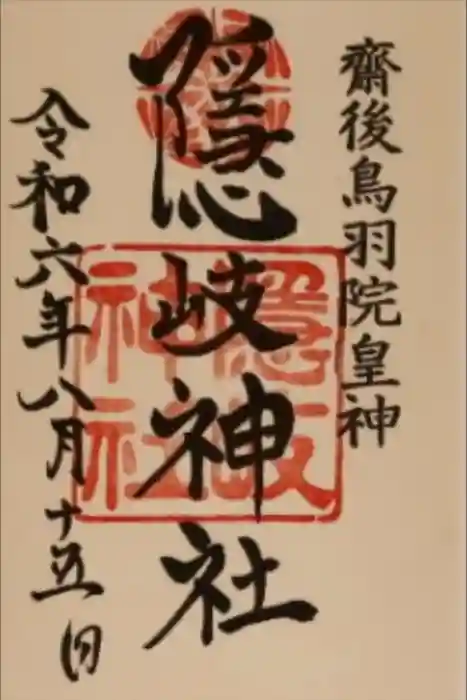 齋後鳥羽院皇神
隠岐神社
隠岐
神社
令和六年八月十五日